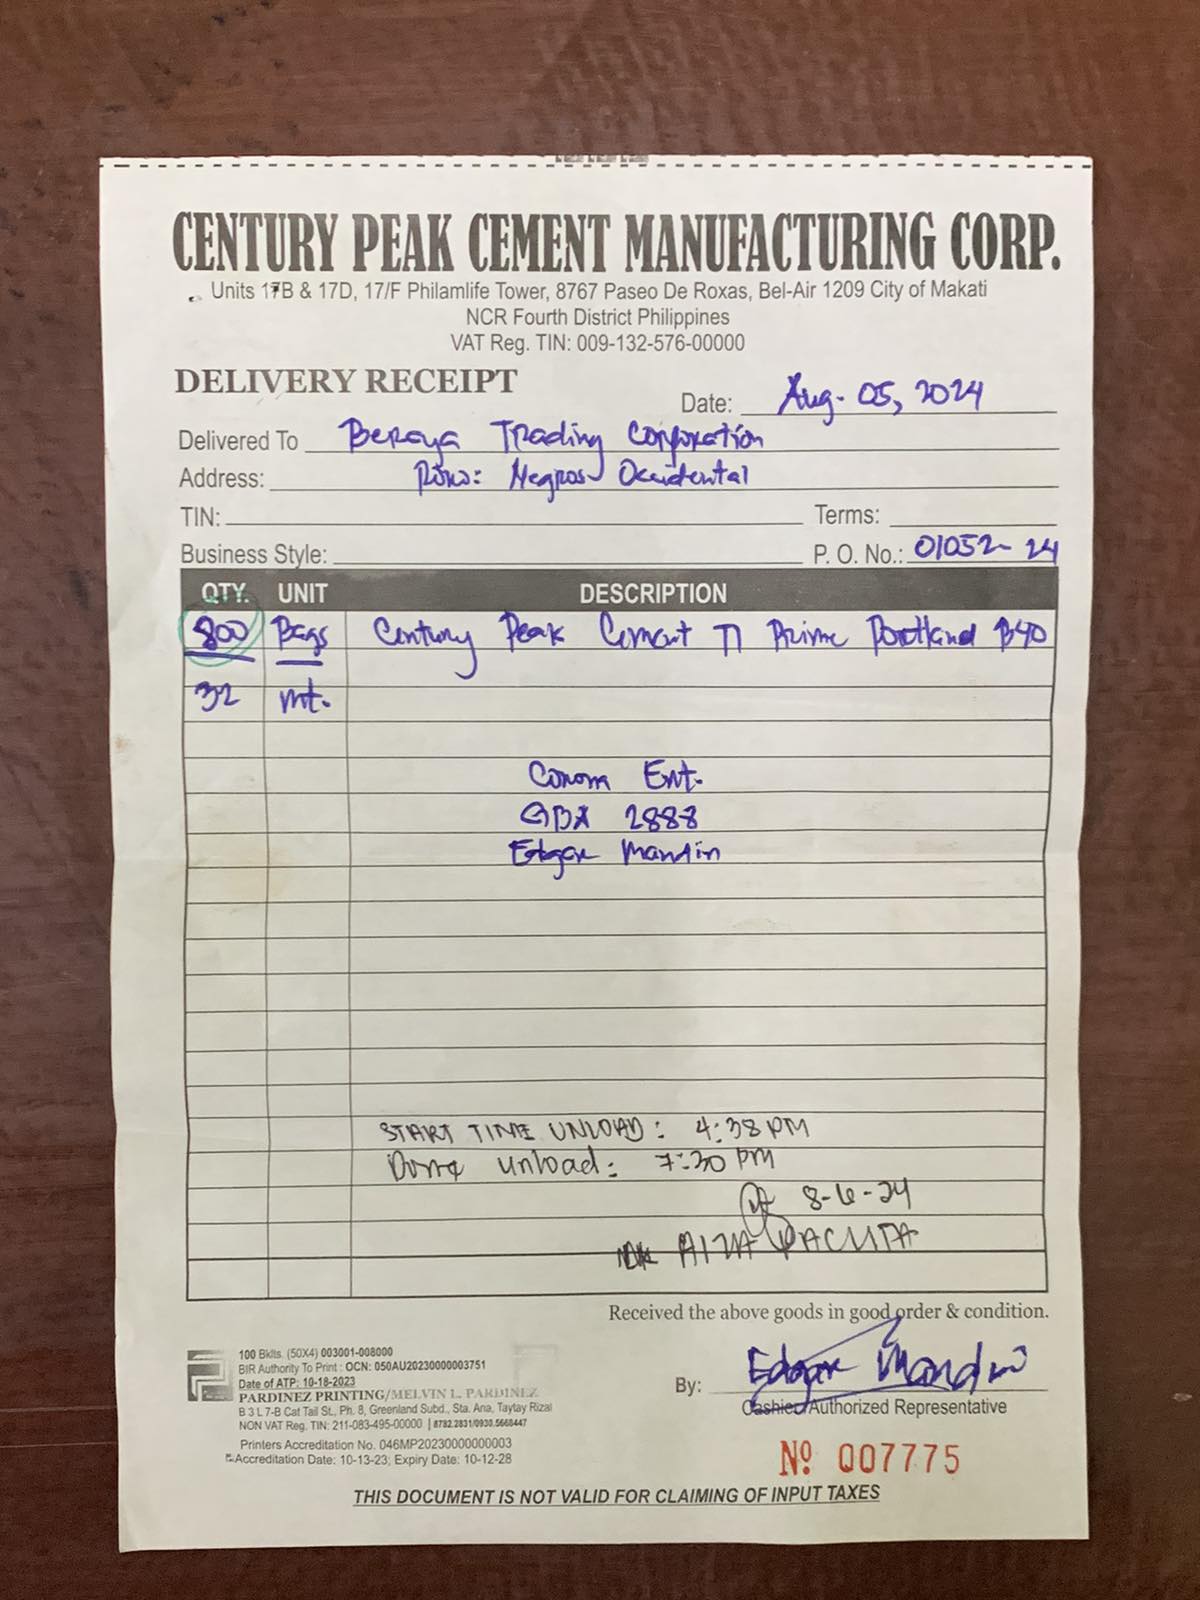 CENTURY PEAK CEMENT MANUFACTURING CORP.
Units 17B & 17D, 17/F Philamlife Tower, 8767 Paseo De Roxas, Bel-Air 1209 City of Makati
NCR Fourth District Philippines
VAT Reg. TIN: 009-132-576-00000
DELIVERY RECEIPT
Date: Aug. 05, 2024
Delivered To Beraya Trading Corporation
Address: Negros Occidental
TIN: Terms:
Business Style: P. O. No.: 01052-24
QTY. UNIT DESCRIPTION
800 Bags Century Peak Cement Prime Portland B40
32 mt.
Ent.
2888
Edgar Mandin
START TIME UNLOAD: 4:38 PM
Done unload: 7:30 PM
8-6-24
Received the above goods in good order & condition.
By: Edgar Mandin
Cashier/Authorized Representative
100 Bklts. (50X4) 003001-008000
BIR Authority To Print : OCN: 050AU20230000003751
Date of ATP: 10-18-2023
PARDINEZ PRINTING/MELVIN L. PARDINEZ
B 3 L 7-B Cat Tail St., Ph. 8, Greenland Subd., Sta. Ana, Taytay Rizal
NON VAT Reg. TIN: 211-083-495-00000 | 8782.2831/0930.5668447
Printers Accreditation No. 046MP20230000000003
Accreditation Date: 10-13-23; Expiry Date: 10-12-28
Nº 007775
THIS DOCUMENT IS NOT VALID FOR CLAIMING OF INPUT TAXES